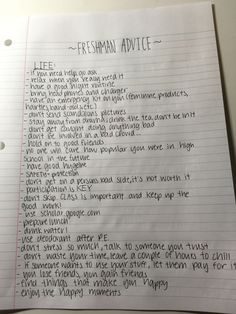 ~FRESHMAN ADVICE~
LIFE:
- if you need help, go ask
- relax when you really need it
- have a good night routine
- bring headphones and charger
- have an emergency kit on you (feminine products,
hairties, hand-aid, etc.)
- don't send scandalous pictures
- stay away from drama; drink the tea, don't be in it
- don't get caught doing anything bad
- don't be involved in a bad crowd...
- hold on to good friends
- no one will care how popular you were in high
school in the future
- have good hygiene
- protection
- don't get on a persons bad side, it's not worth it
- participation is KEY
- don't skip class is important and keep up the
good work!
- use scholar.google.com
- prepare lunch
- drink water!
- use deodorant after P.E.
- don't stress so much, talk to someone you trust
- don't waste your time, leave a couple of hours to chill
- if someone wants to use your stuff, let them pay for it
- you lose friends, you gain friends
- find things that make you happy
- enjoy the happy moments